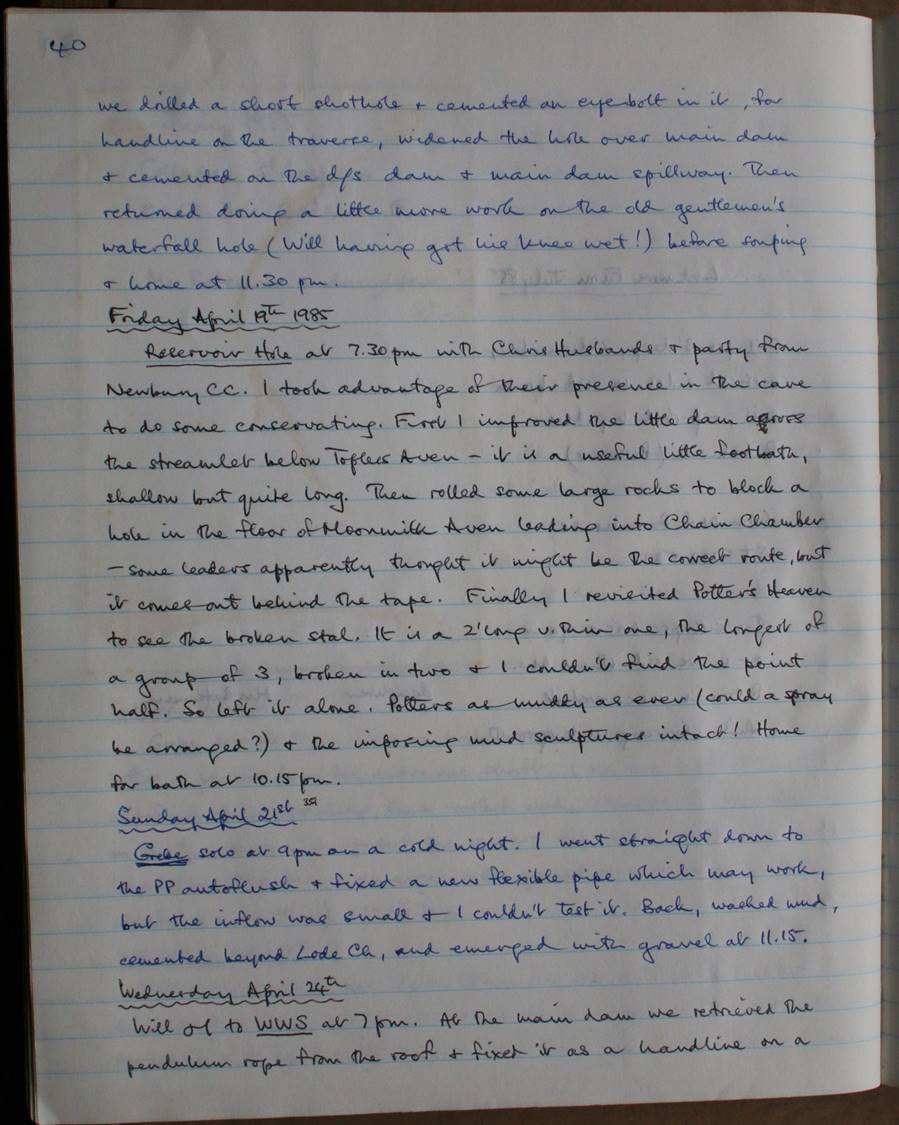 40
we drilled a short shothole + cemented an eyebolt in it, for
handline on the traverse, widened the hole over main dam
+ cemented on the d/s dam + main dam spillway. Then
returned doing a little more work on the old gentlemen's
waterfall hole (Will having got his knee wet!) before souping
+ home at 11.30 pm.
Friday April 19th 1985
Reservoir Hole at 7.30pm with Chris Husbands + party from
Newbury CC. I took advantage of their presence in the cave
to do some conservating. First I improved the little dam across
the streamlet below Topless Aven - it is a useful little footbath,
shallow but quite long. Then rolled some large rocks to block a
hole in the floor of Moonmilk Aven leading into Chain Chamber
- some leaders apparently thought it might be the correct route, but
it comes out behind the tape. Finally I revisited Potter's Heaven
to see the broken stal. It is a 2' long v. thin one, the longest of
a group of 3, broken in two + I couldn't find the point
half. So left it alone. Potters as muddy as ever (could a spray
be arranged?) + the imposing mud sculptures intact! Home
for bath at 10.15pm.
Sunday April 21st
Grebe solo at 9pm on a cold night. I went straight down to
the PP autoflush + fixed a new flexible pipe which may work,
but the inflow was small + I couldn't test it. Back, washed mud,
cemented beyond Lode Ch, and emerged with gravel at 11.15.
Wednesday April 24th
Will + I to WWS at 7pm. At the main dam we retrieved the
pendulum rope from the roof + fixed it as a handline on a